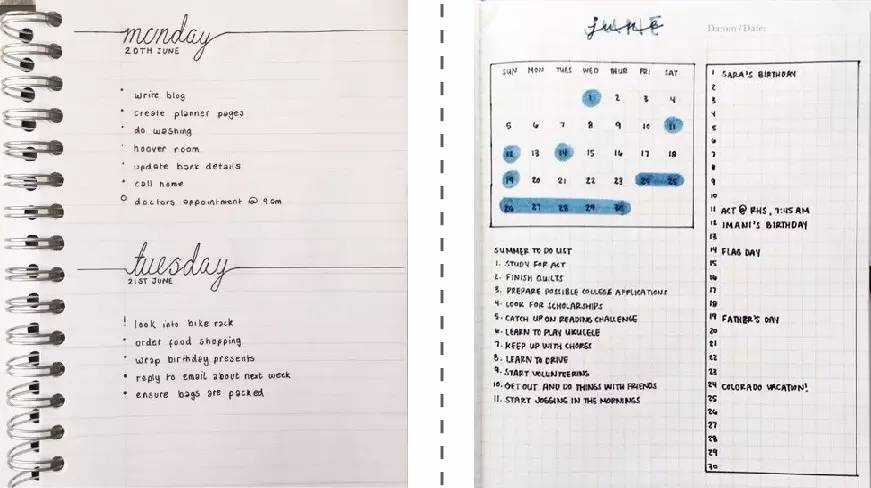 monday
20TH JUNE
• write blog
• create planner pages
• do washing
• hoover room
• update bank details
• call home
o doctors appointment @ 9am
tuesday
21ST JUNE
! look into bike rack
• order food shopping
• wrap birthday presents
• reply to email about next week
• ensure bags are packed
june
Datum / Date:
SUN MON TUES WED THUR FRI SAT
1 2 3 4
5 6 7 8 9 10 11
12 13 14 15 16 17 18
19 20 21 22 23 24 25
26 27 28 29 30
SUMMER TO DO LIST
1. STUDY FOR ACT
2. FINISH QUILTS
3. PREPARE POSSIBLE COLLEGE APPLICATIONS
4. LOOK FOR SCHOLARSHIPS
5. CATCH UP ON READING CHALLENGE
6. LEARN TO PLAY UKULELE
7. KEEP UP WITH CHORES
8. LEARN TO DRIVE
9. START VOLUNTEERING
10. GET OUT AND DO THINGS WITH FRIENDS
11. START JOGGING IN THE MORNINGS
1 SARA'S BIRTHDAY
2
3
4
5
6
7
8
9
10
11 ACT @ RHS, 7:45 AM
12 IMANI'S BIRTHDAY
13
14 FLAG DAY
15
16
17
18
19 FATHER'S DAY
20
21
22
23
24 COLORADO VACATION!
25
26
27
28
29
30